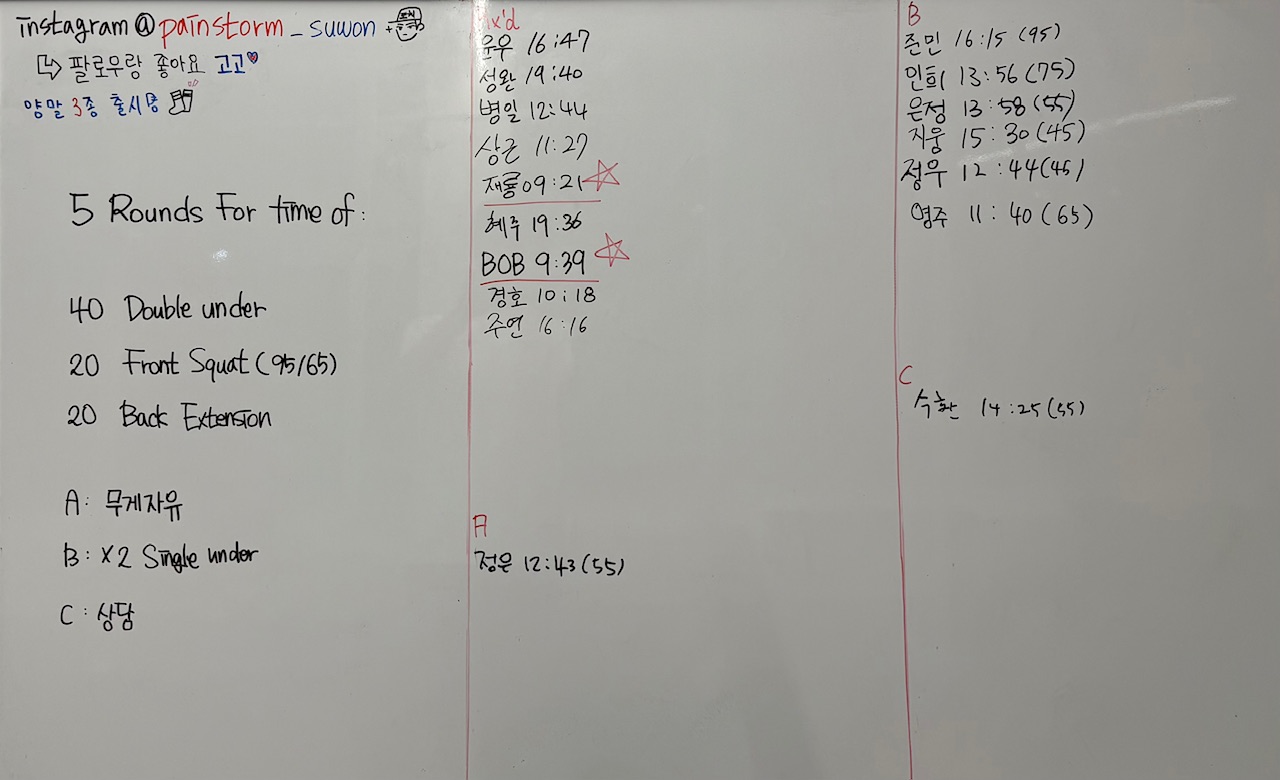 instagram@painstorm_suwon +
↳ 팔로우랑 좋아요 고고♥
양말 3종 출시중
5 Rounds For time of:
40 Double under
20 Front Squat (95/65)
20 Back Extension
A: 무게자유
B: x2 Single under
C: 상담
Rx'd
윤우 16:47
성완 19:40
병일 12:44
상근 11:27
재룡 09:21 ☆
혜주 19:36
BOB 9:39 ☆
경호 10:18
주연 16:16
A
정은 12:43 (55)
B
준민 16:15 (95)
민희 13:56 (75)
은정 13:58 (55)
지웅 15:30 (45)
정우 12:44 (45)
영주 11:40 (65)
C
수환 14:25 (55)